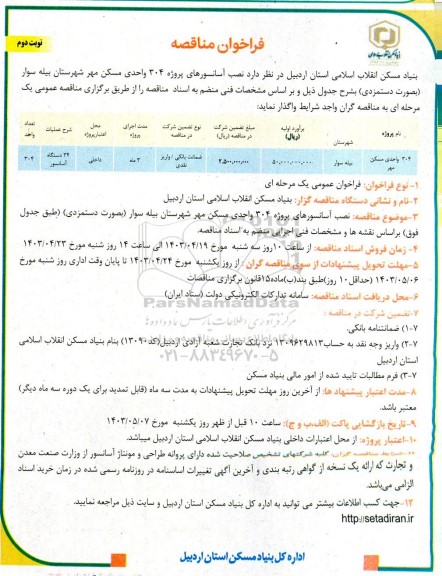 نوبت دوم
فراخوان مناقصه
بنیاد مسکن انقلاب اسلامی
بنیاد مسکن انقلاب اسلامی استان اردبیل در نظر دارد نصب آسانسورهای پروژه ۳۰۴ واحدی مسکن مهر شهرستان بیله سوار
(بصورت دستمزدی) بشرح جدول ذیل و بر اساس مشخصات فنی منضم به اسناد مناقصه را از طریق برگزاری مناقصه عمومی یک
مرحله ای به مناقصه گران واجد شرایط واگذار نماید:
نام پروژه شهرستان برآورد اولیه (ریال) مبلغ تضمین شرکت (ریال) نوع تضمین شرکت مدت اجرای پروژه محل اعتبارپروژه شرح عملیات تعداد واحد
۳۰۴ واحدی مسکن مهر بیله سوار ۵۰.۰۰۰.۰۰۰.۰۰۰ ۲.۵۰۰.۰۰۰.۰۰۰ ضمانت بانکی / واریز نقدی ۳ ماه داخلی ۲۴ دستگاه آسانسور ۳۰۴
۱-نوع فراخوان: فراخوان عمومی یک مرحله ای
۲-نام و نشانی دستگاه مناقصه گزار: بنیاد مسکن انقلاب اسلامی استان اردبیل
۳-موضوع مناقصه: نصب آسانسورهای پروژه ۳۰۴ واحدی مسکن مهر شهرستان بیله سوار (بصورت دستمزدی) (طبق جدول
فوق) براساس نقشه ها و مشخصات فنی اجرایی منضم به اسناد مناقصه.
۴- زمان فروش اسناد مناقصه: از ساعت ۱۰روز سه شنبه مورخ ۱۴۰۳/۰۴/۱۹ الی ساعت ۱۴ روز شنبه مورخ ۱۴۰۳/۰۴/۲۳
۵-مهلت تحویل پیشنهادات از سوی مناقصه گران : از روز یکشنبه مورخ ۱۴۰۳/۰۴/۲۴ تا پایان وقت اداری روز شنبه مورخ
۱۴۰۳/۰۵/۰۶ (حداقل ۱۰ روز)طبق بند(ب)ماده۱۵قانون برگزاری مناقصات
۶-محل دریافت اسناد مناقصه: سامانه تدارکات الکترونیکی دولت (ستاد ایران)
۷-تضمین شرکت در مناقصه :
ParsNamadData
۰۲۱-۸۸۳۴۹۶۷۰-۵
۷-۱) ضمانتنامه بانکی.
۷-۲) واریز وجه نقد به حساب۱۳۰۹۶۲۹۸۱۳ نزد بانک تجارت شعبه آزادی اردبیل(کد۱۳۰۹۰) بنام بنیاد مسکن انقلاب اسلامی
استان اردبیل
۷-۳) فرم مطالبات تایید شده از امور مالی بنیاد مسکن
۸-مدت اعتبار پیشنهاد ها: از آخرین روز مهلت تحویل پیشنهادات به مدت سه ماه (قابل تمدید برای یک دوره سه ماه دیگر)
معتبر باشد.
۹-تاریخ بازگشایی پاکت (الف،ب و ج): ساعت ۱۰ قبل از ظهر روز یکشنبه مورخ ۱۴۰۳/۰۵/۰۷
۱۰-اعتبار پروژه: از محل اعتبارات داخلی بنیاد مسکن انقلاب اسلامی استان اردبیل میباشد.
کلیه شرکتهای تشخیص صلاحیت شده دارای پروانه طراحی و مونتاژ آسانسور از وزارت صنعت معدن
و تجارت که ارائه یک نسخه از گواهی رتبه بندی و آخرین آگهی تغییرات اساسنامه در روزنامه رسمی شده در زمان خرید اسناد
الزامی می‌باشد.
۱۲-جهت کسب اطلاعات بیشتر می توانید به اداره کل بنیاد مسکن استان اردبیل و سایت ذیل مراجعه نمایید.
http://setadiran.ir
اداره کل بنیاد مسکن استان اردبیل